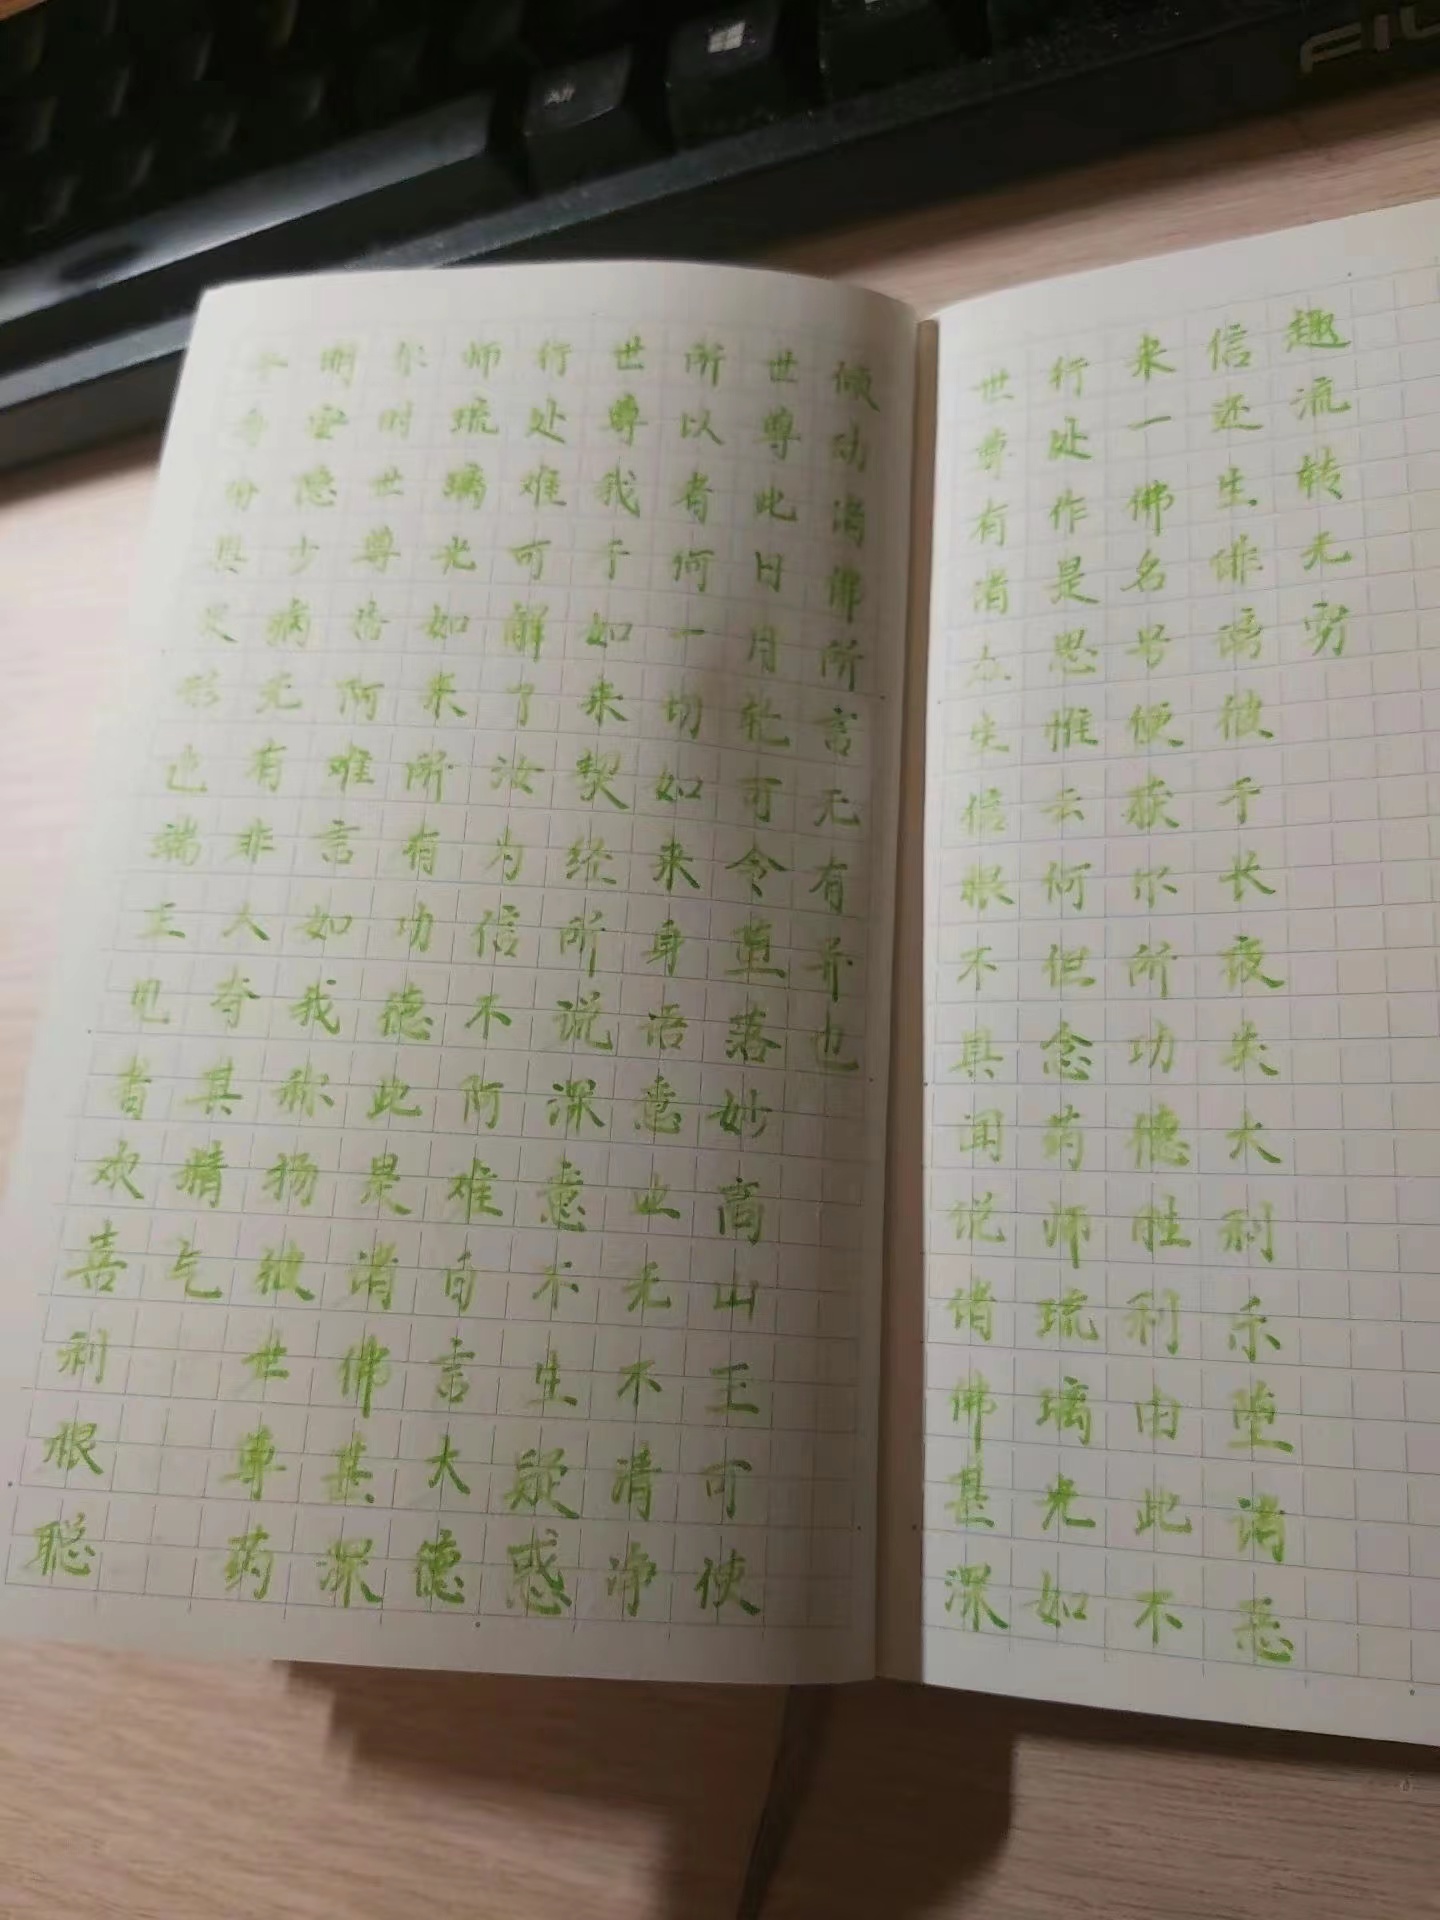 令身分具足形色端正见者欢喜利根聪
明安隐少病无有非人夺其精气
尔时世尊告阿难言如我称扬彼世尊药
师琉璃光如来所有功德此是诸佛甚深
行处难可解了汝为信不阿难白言大德
世尊我于如来契经所说深意不生疑惑
所以者何一切如来身语意业无不清净
世尊此日月轮可令堕落妙高山王可使
倾动诸佛所言无有异也
世尊有诸众生信根不具闻说诸佛甚深
行处作是思惟云何但念药师琉璃光如
来一佛名号便获尔所功德胜利由此不
信还生诽谤彼于长夜失大利乐堕诸恶
趣流转无穷
Alt